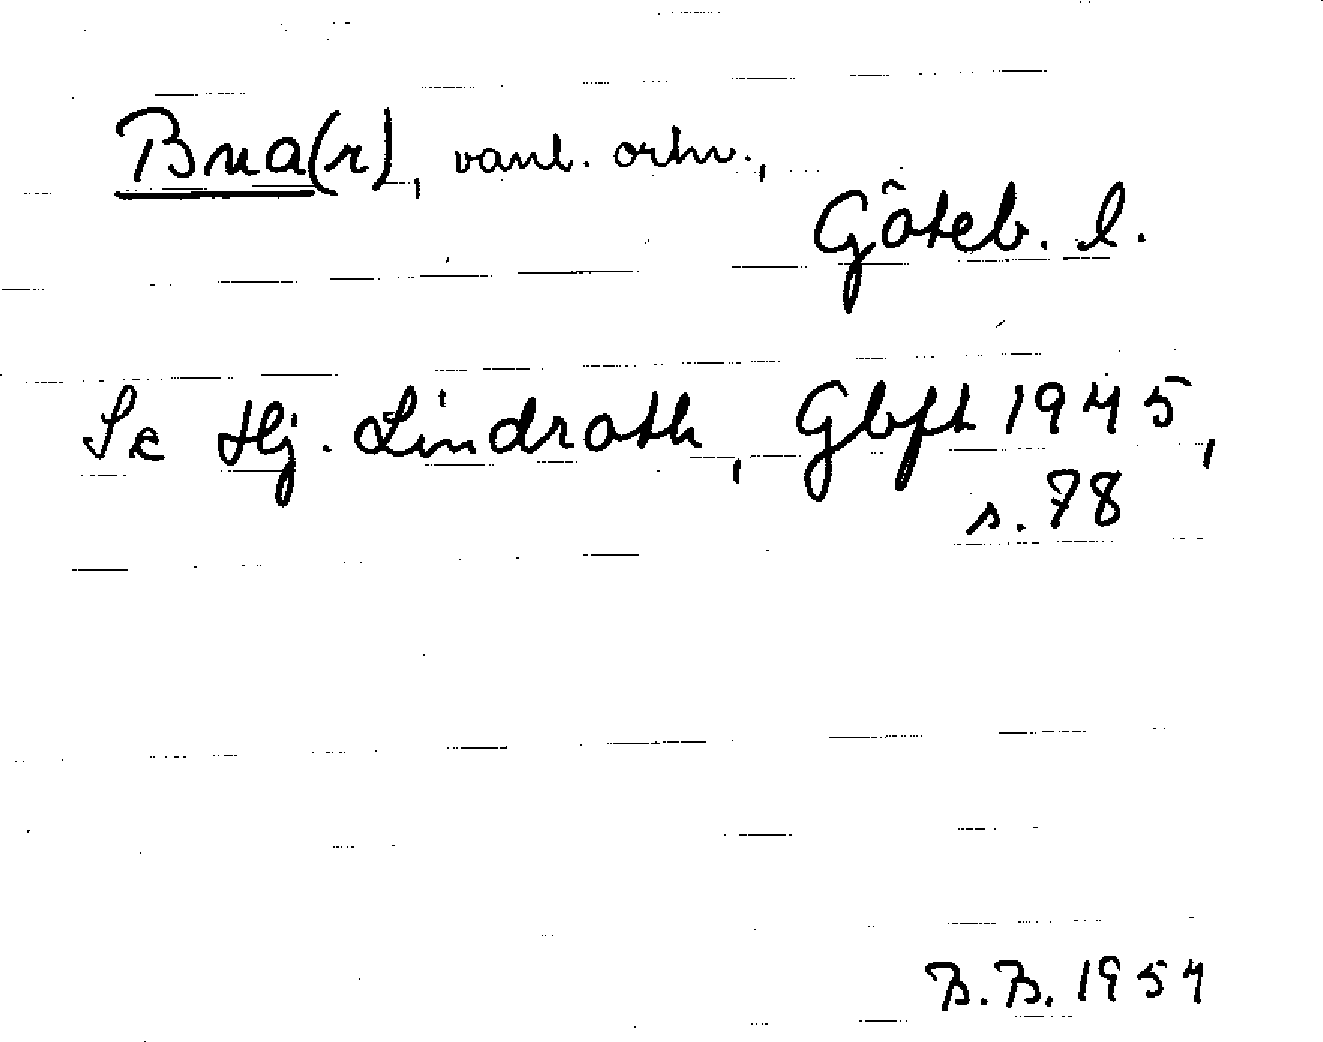 Bua(r), vanl. ortn.,
Göteb. l.
Se Hj. Lindroth, Gbft 1945,
s. 78
B.B. 1954